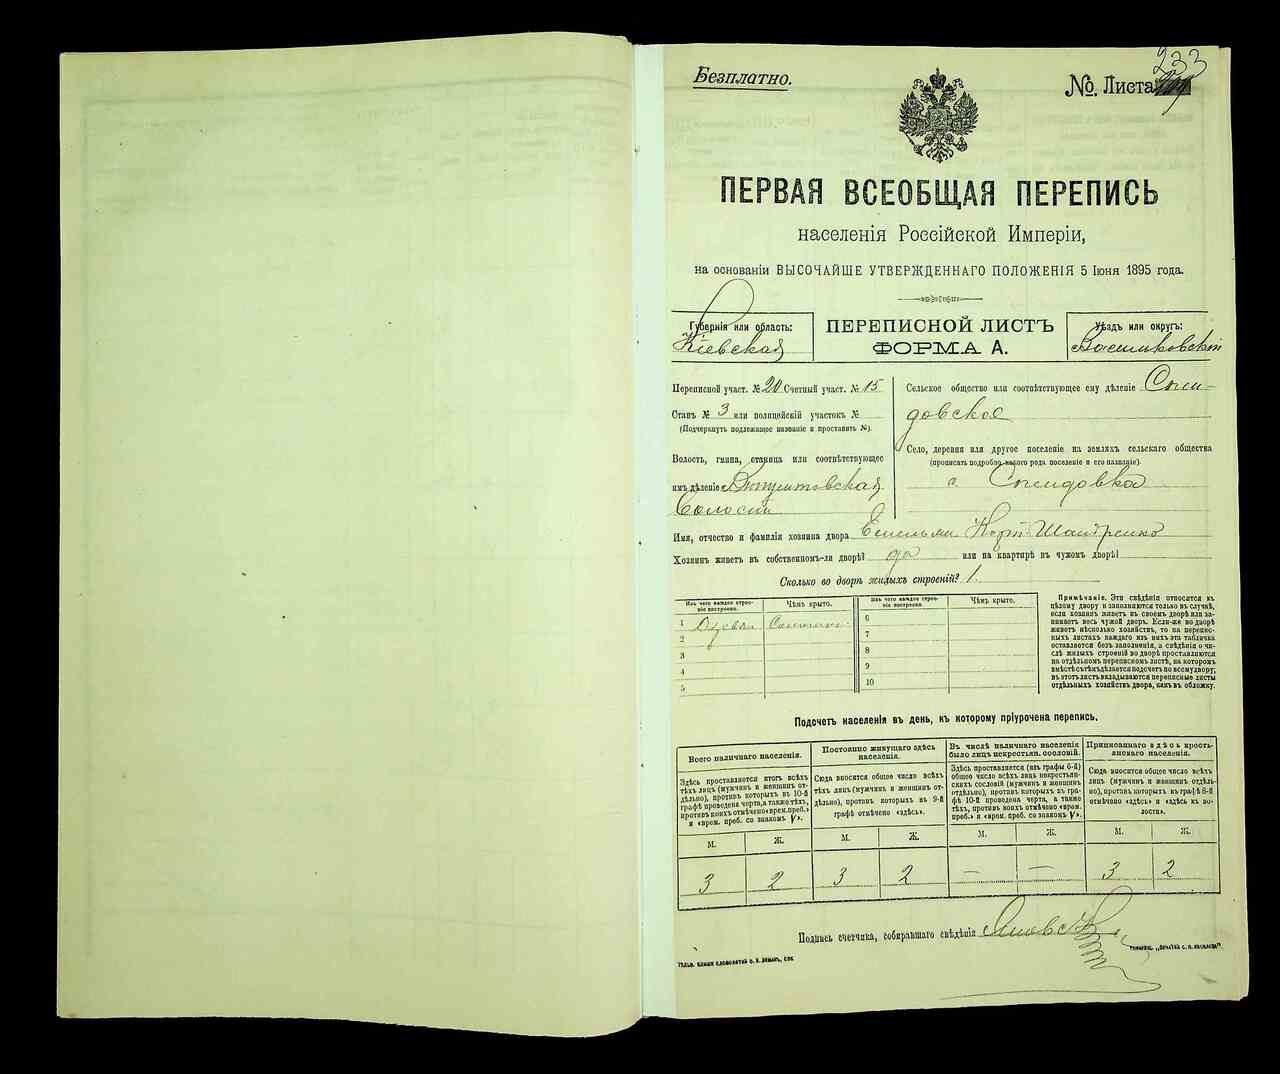 Безплатно.
№. Листа 233
ПЕРВАЯ ВСЕОБЩАЯ ПЕРЕПИСЬ
населенія Россійской Имперіи,
на основаніи ВЫСОЧАЙШЕ УТВЕРЖДЕННАГО ПОЛОЖЕНІЯ 5 Іюня 1895 года.
Губернія или область:
Кіевская
ПЕРЕПИСНОЙ ЛИСТЪ
ФОРМА А.
Уѣздъ или округъ:
Васильковскій
Переписной участ. № 20 Счетный участ. № 15
Станъ № 3 или полицейскій участокъ №
(Подчеркнуть подлежащее названіе и проставить №).
Волость, гмина, станица или соотвѣтствующее
имъ дѣленіе
Волость
Сельское общество или соотвѣтствующее ему дѣленіе
довское
Село, деревня или другое поселеніе на земляхъ сельскаго общества
(прописать подробно какого рода поселеніе и его названіе).
с.
Имя, отчество и фамилія хозяина двора
Хозяинъ живетъ въ собственномъ-ли дворѣ? да или на квартирѣ въ чужомъ дворѣ?
Сколько во дворѣ жилыхъ строеній? 1.
Изъ чего каждое строе-
ніе построено.
Чѣмъ крыто.
Изъ чего каждое строе-
ніе построено.
Чѣмъ крыто.
1
2
3
4
5
6
7
8
9
10
Примѣчаніе. Эти свѣдѣнія относятся къ
цѣлому двору и заполняются только въ случаѣ,
если хозяинъ живетъ въ своемъ дворѣ или за-
нимаетъ весь чужой дворъ. Если-же во дворѣ
живетъ нѣсколько хозяйствъ, то на перепис-
ныхъ листахъ каждаго изъ нихъ эта табличка
оставляется безъ заполненія, а свѣдѣнія о чи-
слѣ жилыхъ строеній во дворѣ проставляются
на отдѣльномъ переписномъ листѣ, на которомъ
вмѣстѣ съ тѣмъ дѣлается подсчетъ по всему двору;
въ этотъ листъ вкладываются переписные листы
отдѣльныхъ хозяйствъ двора, какъ въ обложку.
Подсчетъ населенія въ день, къ которому пріурочена перепись.
Всего наличнаго населенія.
Здѣсь проставляется итогъ всѣхъ
тѣхъ лицъ (мужчинъ и женщинъ от-
дѣльно), противъ которыхъ въ 10-й
графѣ проведена черта, а также тѣхъ,
противъ коихъ отмѣчено «врем. преб.»
и «врем. преб. со знакомъ V».
Постоянно живущаго здѣсь
населенія.
Сюда вносится общее число всѣхъ
тѣхъ лицъ (мужчинъ и женщинъ от-
дѣльно), противъ которыхъ въ 9-й
графѣ отмѣчено «здѣсь».
Въ числѣ наличнаго населенія
было лицъ некрестьян. сословій.
Здѣсь проставляется (изъ графы 6-й)
общее число всѣхъ лицъ некрестьян-
скихъ сословій (мужчинъ и женщинъ
отдѣльно), противъ которыхъ въ гра-
фѣ 10-й проведена черта, а также
тѣхъ, противъ коихъ отмѣчено «врем.
преб.» и «врем. преб. со знакомъ V».
Приписаннаго здѣсь кресть-
янскаго населенія.
Сюда вносится общее число всѣхъ
лицъ (мужчинъ и женщинъ отдѣль-
но), противъ которыхъ въ графѣ 8-й
отмѣчено «здѣсь» и «здѣсь къ во-
лости».
М. Ж. М. Ж. М. Ж. М. Ж.
3 2 3 2 — — 3 2
Подпись счетчика, собиравшаго свѣдѣнія